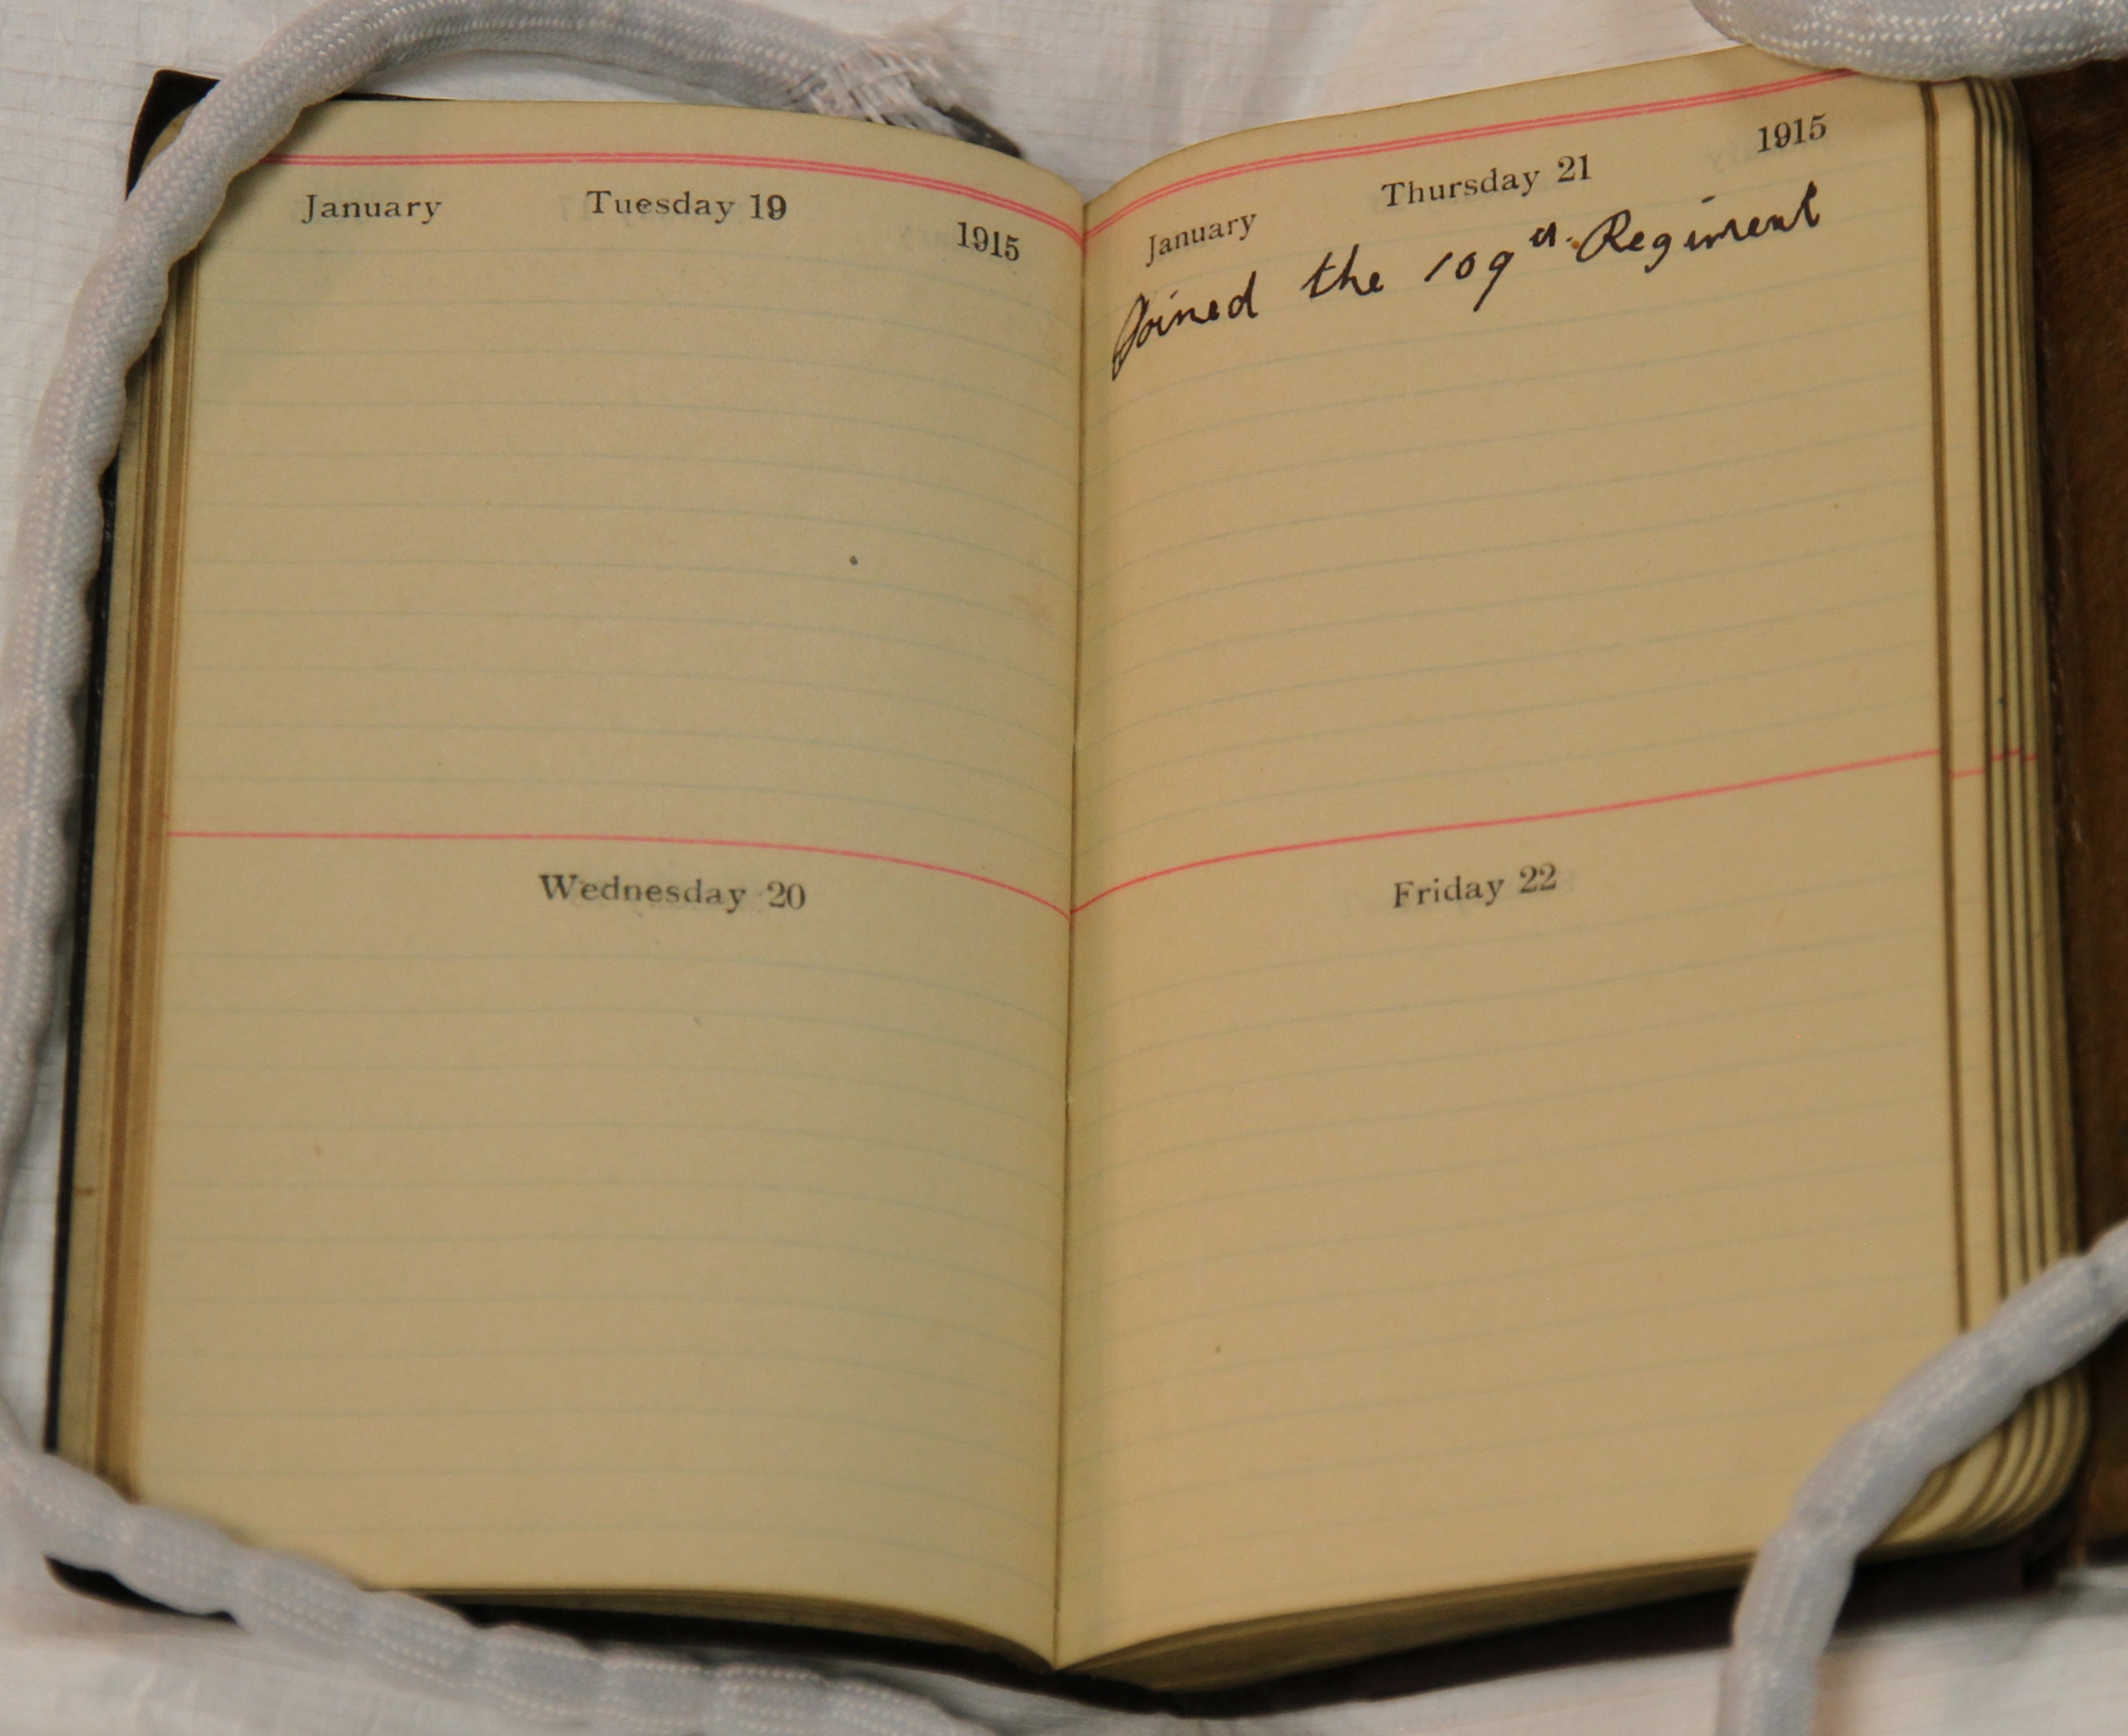 January Tuesday 19 1915
Wednesday 20
January Thursday 21 1915
Joined the 109th. Regiment
Friday 22